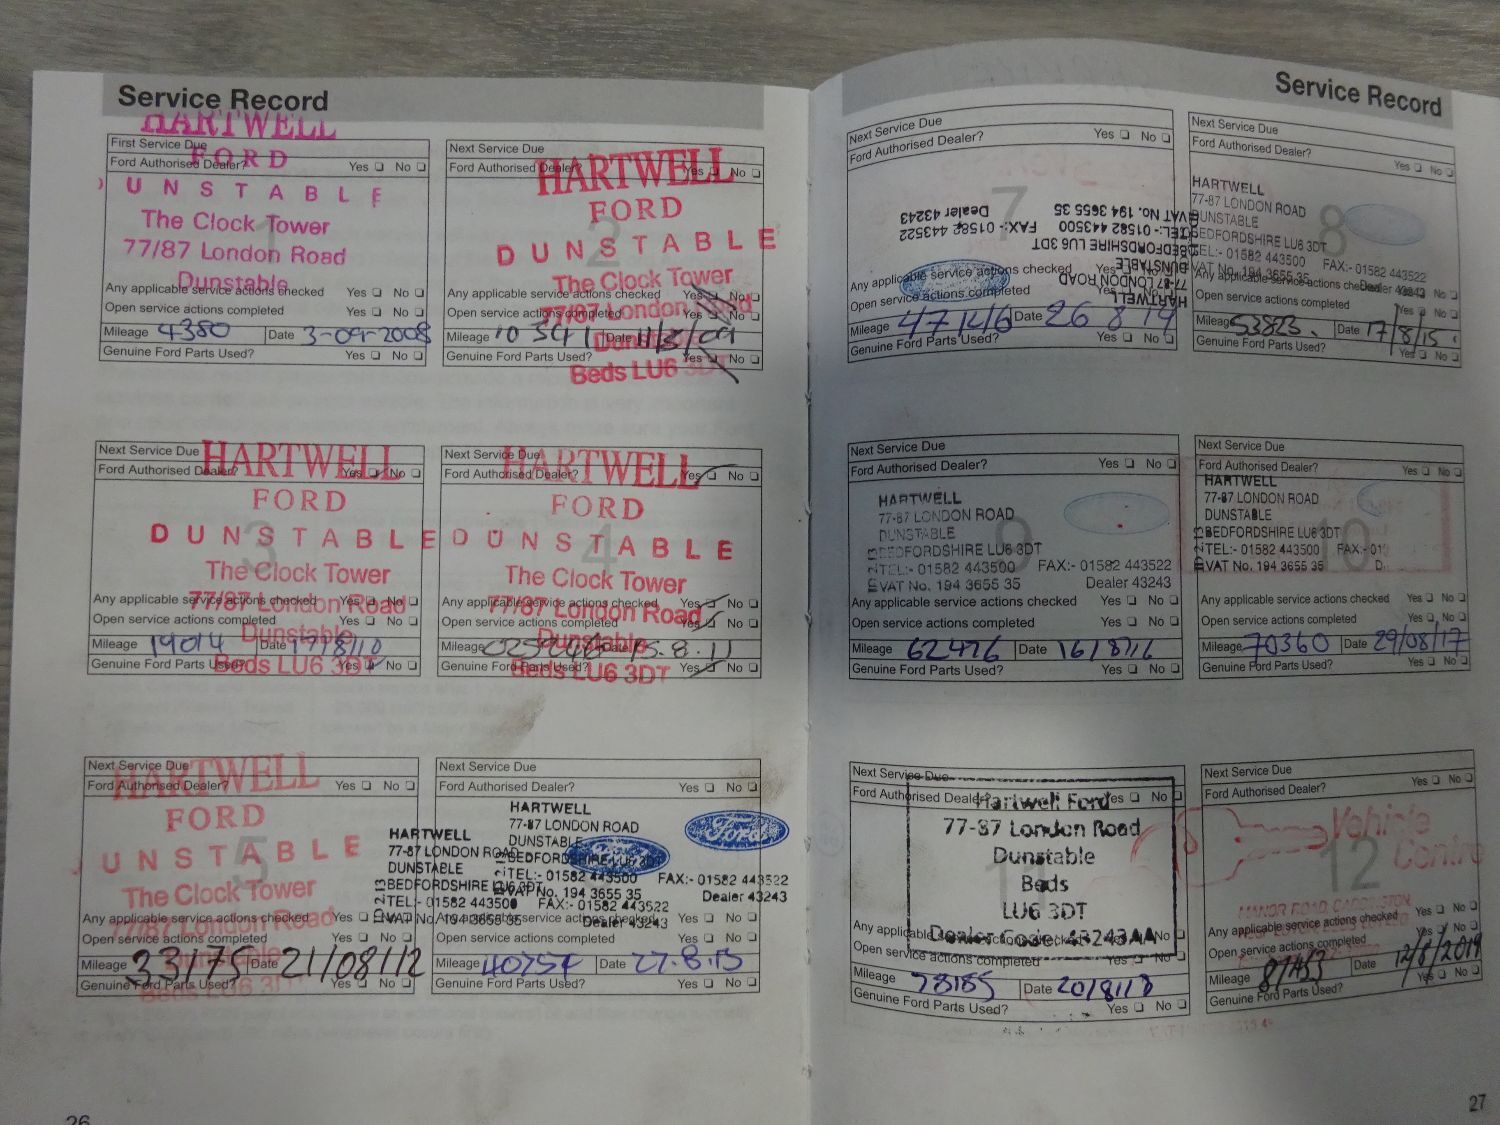 Service Record
HARTWELL
First Service Due
FORD
Ford Authorised Dealer? Yes No
DUNSTABLE
The Clock Tower
77/87 London Road
Dunstable
Any applicable service actions checked Yes No
Open service actions completed Yes No
Mileage 4380 Date 3-09-2008
Genuine Ford Parts Used? Yes No
Next Service Due
HARTWELL
Ford Authorised Dealer? Yes No
FORD
2
DUNSTABLE
The Clock Tower
Any applicable service actions checked Yes No
77/87 London Road
Open service actions completed Yes No
Mileage 10341 Date 11/3/09
Dunstable
Genuine Ford Parts Used? Yes No
Beds LU6 3DT
Next Service Due
HARTWELL
Ford Authorised Dealer? Yes No
FORD
3
DUNSTABLE
The Clock Tower
Any applicable service actions checked Yes No
77/87 London Road
Open service actions completed Yes No
Dunstable
Mileage 19014 Date 17/8/10
Genuine Ford Parts Used? Yes No
Beds LU6 3DT
Next Service Due
HARTWELL
Ford Authorised Dealer? Yes No
FORD
4
DUNSTABLE
The Clock Tower
Any applicable service actions checked Yes No
77/87 London Road
Open service actions completed Yes No
Dunstable
Mileage Date 15.8.11
Genuine Ford Parts Used? Yes No
Beds LU6 3DT
Next Service Due
HARTWELL
Ford Authorised Dealer? Yes No
FORD
5
DUNSTABLE
The Clock Tower
Any applicable service actions checked Yes No
77/87 London Road
Open service actions completed Yes No
Mileage 33175 Date 21/08/12
Genuine Ford Parts Used? Yes No
Beds LU6 3DT
HARTWELL
77-87 LONDON ROAD
DUNSTABLE
BEDFORDSHIRE LU6 3DT
TEL:- 01582 443500 FAX:- 01582 443522
VAT No. 194 3655 35 Dealer 43243
Next Service Due
Ford Authorised Dealer? Yes No
HARTWELL
77-87 LONDON ROAD
Ford
DUNSTABLE
BEDFORDSHIRE LU6 3DT
TEL:- 01582 443500 FAX:- 01582 443522
VAT No. 194 3655 35 Dealer 43243
Any applicable service actions checked Yes No
Open service actions completed Yes No
Mileage 40754 Date 27.8.13
Genuine Ford Parts Used? Yes No
26
Service Record
Next Service Due
Ford Authorised Dealer? Yes No
7
HARTWELL
77-87 LONDON ROAD
DUNSTABLE
BEDFORDSHIRE LU6 3DT
TEL:- 01582 443500 FAX:- 01582 443522
VAT No. 194 3655 35 Dealer 43243
Any applicable service actions checked Yes No
Open service actions completed Yes No
Mileage 47146 Date 26 8 14
Genuine Ford Parts Used? Yes No
Next Service Due
Ford Authorised Dealer? Yes No
HARTWELL
77-87 LONDON ROAD
DUNSTABLE
8
BEDFORDSHIRE LU6 3DT
TEL:- 01582 443500 FAX:- 01582 443522
VAT No. 194 3655 35 Dealer 43243
Any applicable service actions checked Yes No
Open service actions completed Yes No
Mileage 53823 Date 17/8/15
Genuine Ford Parts Used? Yes No
Next Service Due
Ford Authorised Dealer? Yes No
HARTWELL
77-87 LONDON ROAD
DUNSTABLE
9
BEDFORDSHIRE LU6 3DT
TEL:- 01582 443500 FAX:- 01582 443522
VAT No. 194 3655 35 Dealer 43243
Any applicable service actions checked Yes No
Open service actions completed Yes No
Mileage 62426 Date 16/8/16
Genuine Ford Parts Used? Yes No
Next Service Due
Ford Authorised Dealer? Yes No
HARTWELL
77-87 LONDON ROAD
DUNSTABLE
10
BEDFORDSHIRE LU6 3DT
TEL:- 01582 443500 FAX:- 01
VAT No. 194 3655 35 D
Any applicable service actions checked Yes No
Open service actions completed Yes No
Mileage 70360 Date 29/08/17
Genuine Ford Parts Used? Yes No
Next Service Due
Ford Authorised Dealer? Yes No
Hartwell Ford
77-87 London Road
Dunstable
11
Beds
LU6 3DT
Dealer Code 43243AA
Any applicable service actions checked Yes No
Open service actions completed Yes No
Mileage 78185 Date 20/8/18
Genuine Ford Parts Used? Yes No
Next Service Due
Ford Authorised Dealer? Yes No
Vehicle
Centre
12
MANOR ROAD, CADDINGTON
Any applicable service actions checked Yes No
Open service actions completed Yes No
Mileage 87453 Date 12/8/2019
Genuine Ford Parts Used? Yes No
27